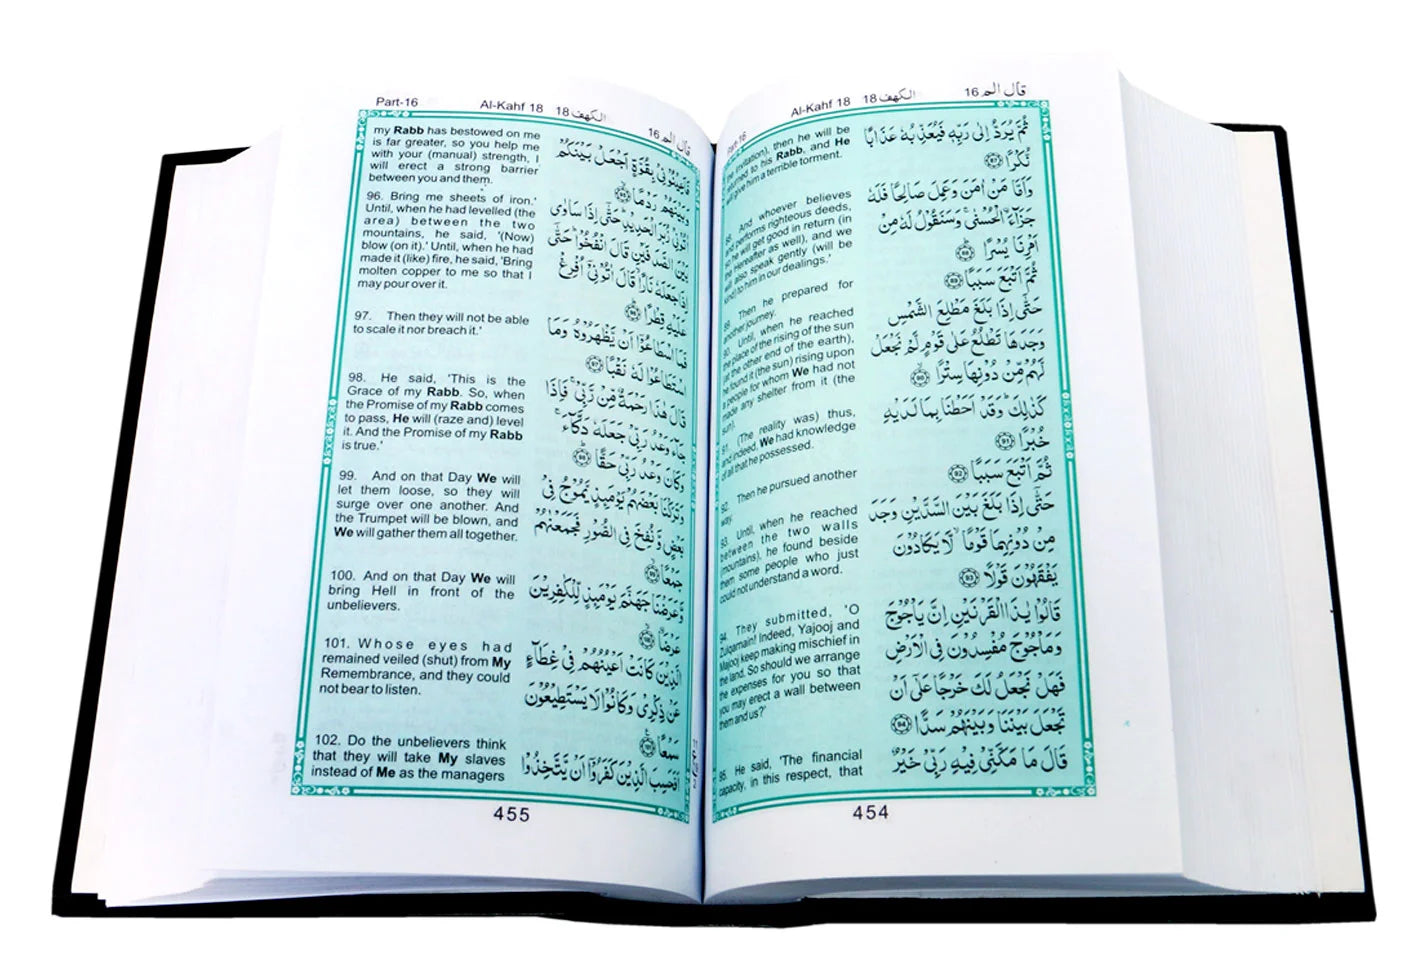 Part-16
Al-Kahf 18
الكهف 18
قال الم 16
the invitation), then he will be
returned to his Rabb, and He
will give him a terrible torment.
88. And whoever believes
and performs righteous deeds,
so he will get good in return (in
the Hereafter as well), and we
will also speak gently (will be
kind) to him in our dealings.'
89. Then he prepared for
another journey.
90. Until, when he reached
the place of the rising of the sun
(at the other end of the earth),
he found it (the sun) rising upon
a people for whom We had not
made any shelter from it (the
sun).
91. (The reality was) thus,
and indeed We had knowledge
of all that he possessed.
92. Then he pursued another
way.
93. Until, when he reached
between the two walls
(mountains), he found beside
them some people who just
could not understand a word.
94. They submitted, 'O
Zulqarnain! Indeed, Yajooj and
Majooj keep making mischief in
the land. So should we arrange
the expenses for you so that
you may erect a wall between
them and us?'
95. He said, 'The financial
capacity, in this respect, that
ثُمَّ يُرَدُّ اِلٰى رَبِّهٖ فَيُعَذِّبُهٗ عَذَابًا
نُّكْرًا ﴿87﴾
وَاَمَّا مَنْ اٰمَنَ وَعَمِلَ صَالِحًا فَلَهٗ
جَزَآءَۨ الْحُسْنٰى ۚ وَسَنَقُوْلُ لَهٗ مِنْ
اَمْرِنَا يُسْرًا ﴿88﴾
ثُمَّ اَتْبَعَ سَبَبًا ﴿89﴾
حَتّٰٓى اِذَا بَلَغَ مَطْلِعَ الشَّمْسِ
وَجَدَهَا تَطْلُعُ عَلٰى قَوْمٍ لَّمْ نَجْعَلْ
لَّهُمْ مِّنْ دُوْنِهَا سِتْرًا ﴿90﴾
كَذٰلِكَ ؕ وَقَدْ اَحَطْنَا بِمَا لَدَيْهِ
خُبْرًا ﴿91﴾
ثُمَّ اَتْبَعَ سَبَبًا ﴿92﴾
حَتّٰٓى اِذَا بَلَغَ بَيْنَ السَّدَّيْنِ وَجَدَ
مِنْ دُوْنِهِمَا قَوْمًا ۙ لَّا يَكَادُوْنَ
يَفْقَهُوْنَ قَوْلًا ﴿93﴾
قَالُوْا يٰذَا الْقَرْنَيْنِ اِنَّ يَاْجُوْجَ
وَمَاْجُوْجَ مُفْسِدُوْنَ فِى الْاَرْضِ
فَهَلْ نَجْعَلُ لَكَ خَرْجًا عَلٰٓى اَنْ
تَجْعَلَ بَيْنَنَا وَبَيْنَهُمْ سَدًّا ﴿94﴾
قَالَ مَا مَكَّنِّىْ فِيْهِ رَبِّىْ خَيْرٌ
454
Part-16
Al-Kahf 18
الكهف 18
قال الم 16
my Rabb has bestowed on me
is far greater, so you help me
with your (manual) strength, I
will erect a strong barrier
between you and them.
96. Bring me sheets of iron.'
Until, when he had levelled (the
area) between the two
mountains, he said, '(Now)
blow (on it).' Until, when he had
made it (like) fire, he said, 'Bring
molten copper to me so that I
may pour over it.
97. Then they will not be able
to scale it nor breach it.'
98. He said, 'This is the
Grace of my Rabb. So, when
the Promise of my Rabb comes
to pass, He will (raze and) level
it. And the Promise of my Rabb
is true.'
99. And on that Day We will
let them loose, so they will
surge over one another. And
the Trumpet will be blown, and
We will gather them all together.
100. And on that Day We will
bring Hell in front of the
unbelievers.
101. Whose eyes had
remained veiled (shut) from My
Remembrance, and they could
not bear to listen.
102. Do the unbelievers think
that they will take My slaves
instead of Me as the managers
فَاَعِيْنُوْنِىْ بِقُوَّةٍ اَجْعَلْ بَيْنَكُمْ
وَبَيْنَهُمْ رَدْمًا ﴿95﴾
اٰتُوْنِىْ زُبَرَ الْحَدِيْدِ ؕ حَتّٰٓى اِذَا سَاوٰى
بَيْنَ الصَّدَفَيْنِ قَالَ انْفُخُوْا ؕ حَتّٰٓى
اِذَا جَعَلَهٗ نَارًا ۙ قَالَ اٰتُوْنِىْٓ اُفْرِغْ
عَلَيْهِ قِطْرًا ﴿96﴾
فَمَا اسْطَاعُوْٓا اَنْ يَّظْهَرُوْهُ وَمَا
اسْتَطَاعُوْا لَهٗ نَقْبًا ﴿97﴾
قَالَ هٰذَا رَحْمَةٌ مِّنْ رَّبِّىْ ۚ فَاِذَا
جَآءَ وَعْدُ رَبِّىْ جَعَلَهٗ دَكَّآءَ ۚ
وَكَانَ وَعْدُ رَبِّىْ حَقًّا ﴿98﴾
وَتَرَكْنَا بَعْضَهُمْ يَوْمَئِذٍ يَّمُوْجُ فِىْ
بَعْضٍ وَّنُفِخَ فِى الصُّوْرِ فَجَمَعْنٰهُمْ
جَمْعًا ﴿99﴾
وَّعَرَضْنَا جَهَنَّمَ يَوْمَئِذٍ لِّلْكٰفِرِيْنَ
عَرْضًا ﴿100﴾
الَّذِيْنَ كَانَتْ اَعْيُنُهُمْ فِىْ غِطَآءٍ
عَنْ ذِكْرِىْ وَكَانُوْا لَا يَسْتَطِيْعُوْنَ
سَمْعًا ﴿101﴾
اَفَحَسِبَ الَّذِيْنَ كَفَرُوْٓا اَنْ يَّتَّخِذُوْا
455